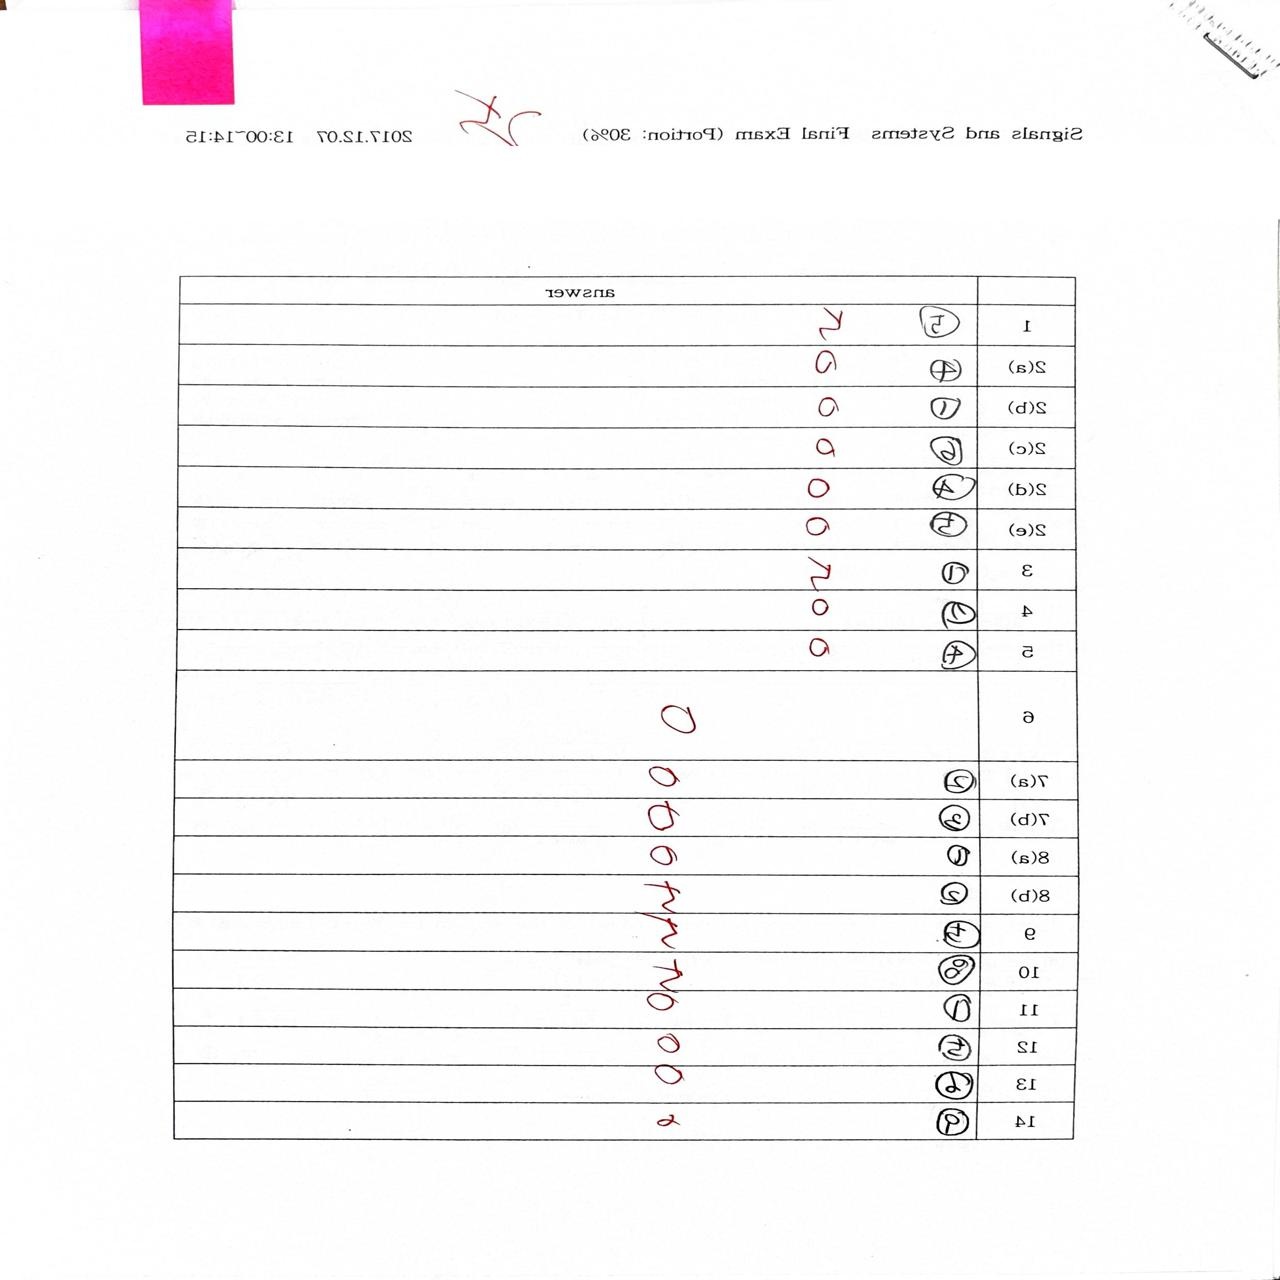 Signals and Systems Final Exam (Portion: 30%) 25 2017.12.07 13:00~14:15
answer
1 ⑤ 5
2(a) ④ 0
2(b) ① 0
2(c) ⑥ 0
2(d) ④ 0
2(e) ⑤ 0
3 ① 5
4 0
5 ④ 0
6 0
7(a) ② 0
7(b) ③
8(a) ① 0
8(b) ② 5
9 5
10 ⑧ 5
11 ① 0
12 ⑤ 0
13 0
14